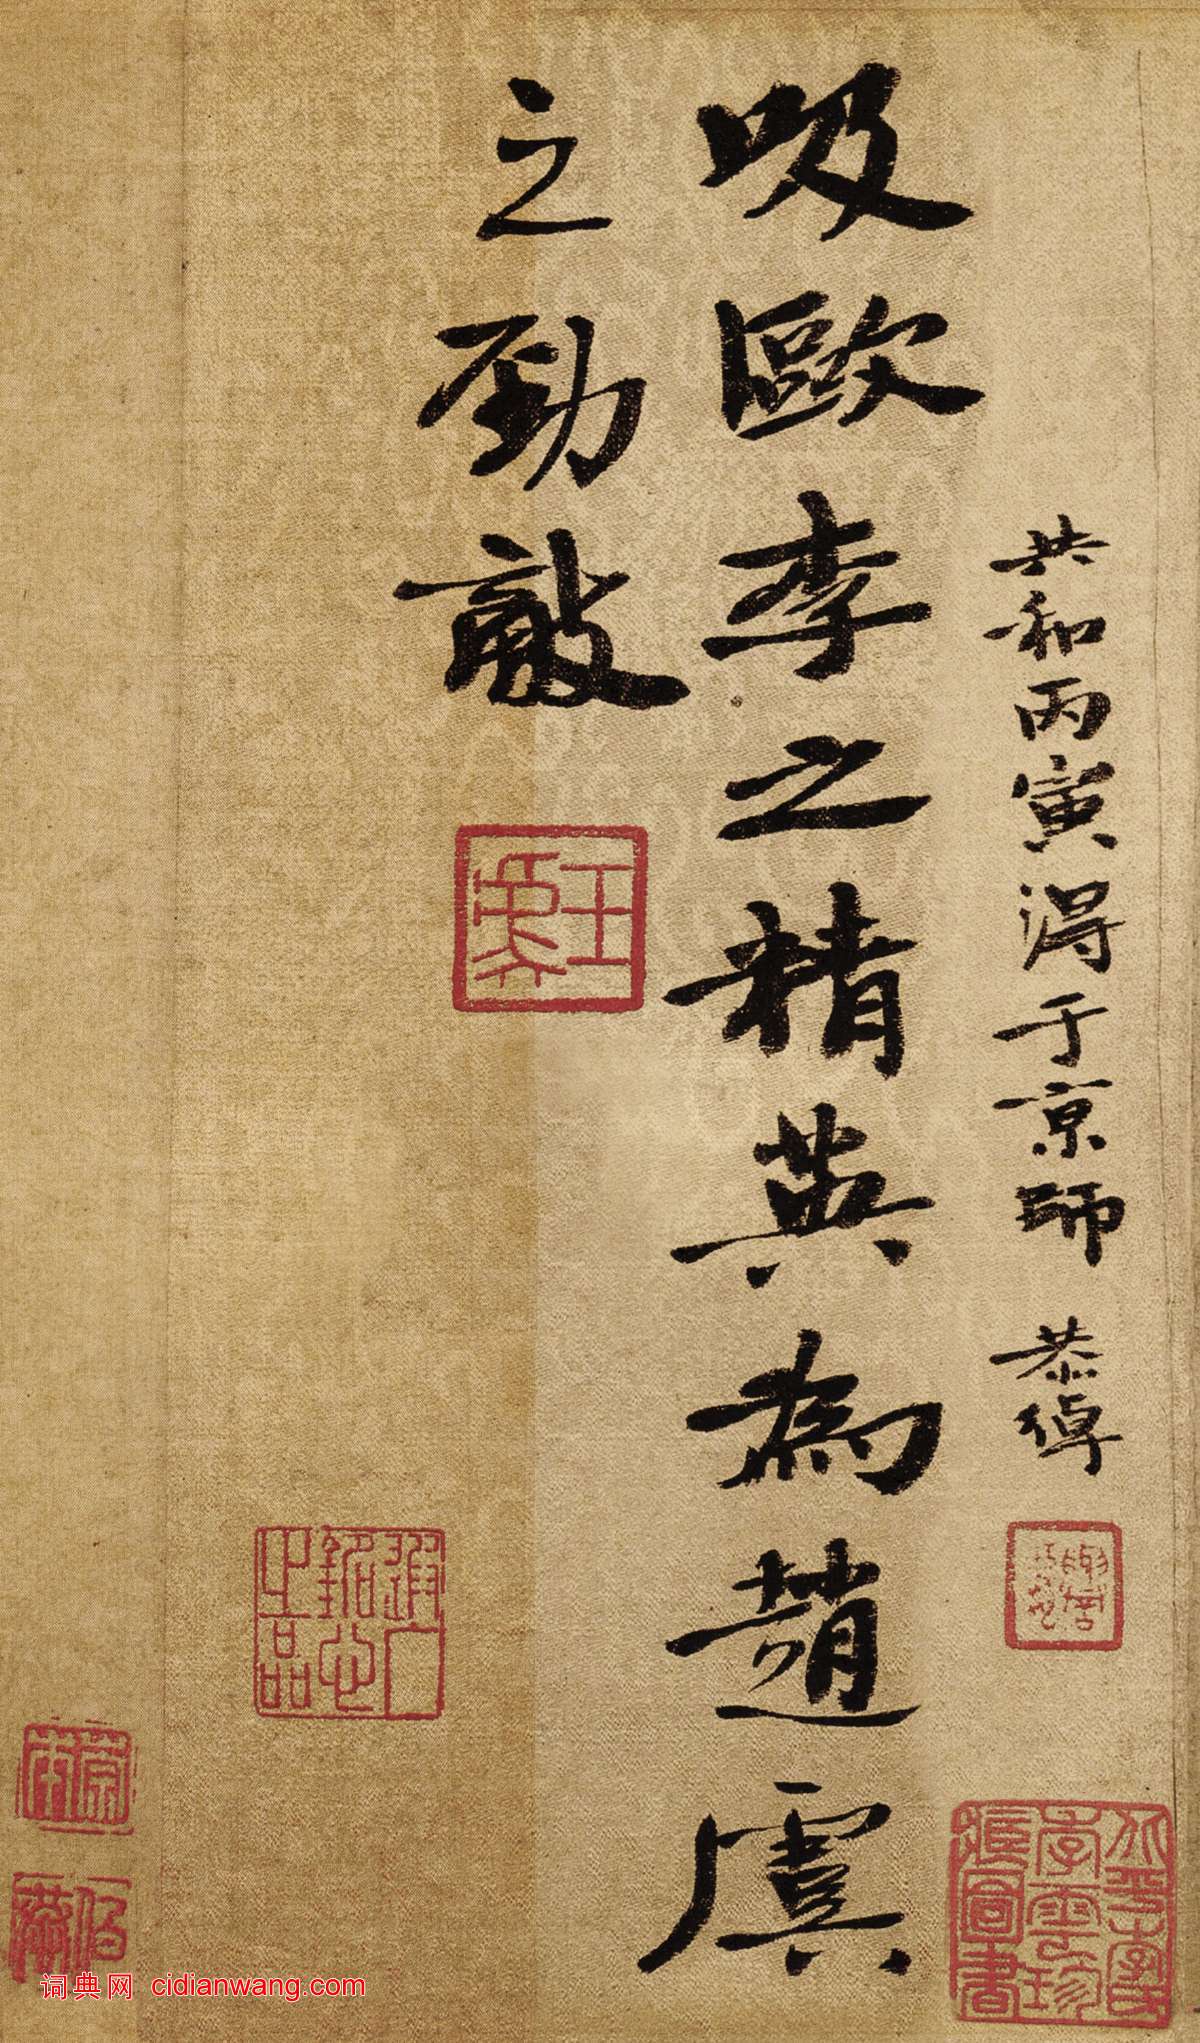 共和丙寅得于京師 恭綽
吸歐李之精英為趙虞
之勁敵
詞典网 cidianwang.com